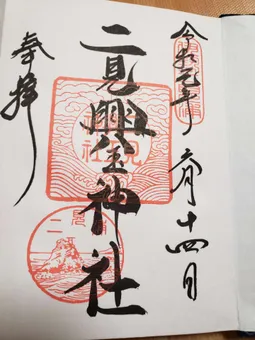 令和元年六月十四日
二見興玉神社
奉拝